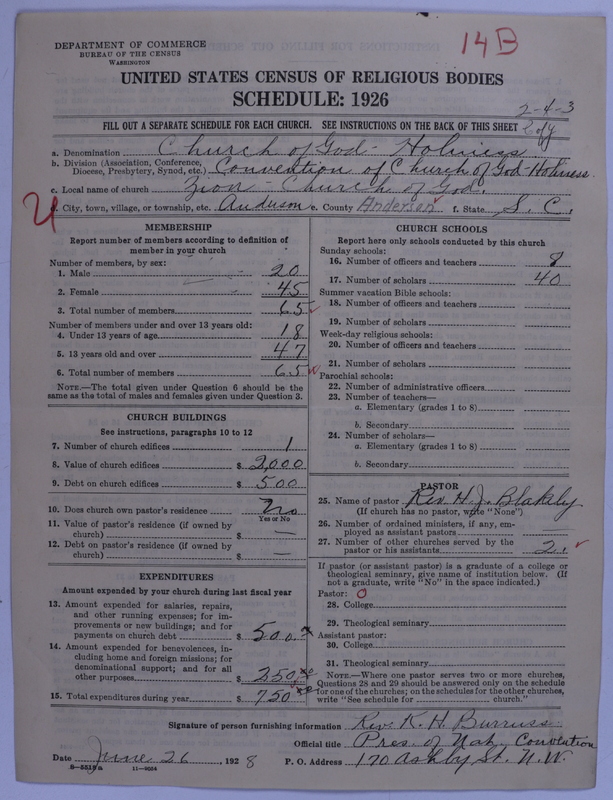 14B
DEPARTMENT OF COMMERCE
BUREAU OF THE CENSUS
WASHINGTON
UNITED STATES CENSUS OF RELIGIOUS BODIES
SCHEDULE: 1926
2-4-3
FILL OUT A SEPARATE SCHEDULE FOR EACH CHURCH. SEE INSTRUCTIONS ON THE BACK OF THIS SHEET
a. Denomination Church of God - Holiness
b. Division (Association, Conference, Diocese, Presbytery, Synod, etc.) Convention of Church of God-Holiness.
c. Local name of church Zion - Church of God.
d. City, town, village, or township, etc. Anderson e. County Anderson f. State S. C.
MEMBERSHIP
Report number of members according to definition of
member in your church
Number of members, by sex:
1. Male 20
2. Female 45
3. Total number of members 65
Number of members under and over 13 years old:
4. Under 13 years of age 18
5. 13 years old and over 47
6. Total number of members 65
NOTE.—The total given under Question 6 should be the
same as the total of males and females given under Question 3.
CHURCH BUILDINGS
See instructions, paragraphs 10 to 12
7. Number of church edifices 1
8. Value of church edifices $ 2,000
9. Debt on church edifices $ 500
10. Does church own pastor's residence No
Yes or No
11. Value of pastor's residence (if owned by
church) $ —
12. Debt on pastor's residence (if owned by
church) $ —
EXPENDITURES
Amount expended by your church during last fiscal year
13. Amount expended for salaries, repairs,
and other running expenses; for im-
provements or new buildings; and for
payments on church debt $ 500
14. Amount expended for benevolences, in-
cluding home and foreign missions; for
denominational support; and for all
other purposes $ 250
15. Total expenditures during year $ 750
CHURCH SCHOOLS
Report here only schools conducted by this church
Sunday schools:
16. Number of officers and teachers 8
17. Number of scholars 40
Summer vacation Bible schools:
18. Number of officers and teachers
19. Number of scholars
Week-day religious schools:
20. Number of officers and teachers
21. Number of scholars
Parochial schools:
22. Number of administrative officers
23. Number of teachers—
a. Elementary (grades 1 to 8)
b. Secondary
24. Number of scholars—
a. Elementary (grades 1 to 8)
b. Secondary
PASTOR
25. Name of pastor Rev. H. J. Blakely
(If church has no pastor, write "None")
26. Number of ordained ministers, if any, em-
ployed as assistant pastors
27. Number of other churches served by the
pastor or his assistants 2
If pastor (or assistant pastor) is a graduate of a college or
theological seminary, give name of institution below. (If
not a graduate, write "No" in the space indicated.)
Pastor: O
28. College
29. Theological seminary
Assistant pastor:
30. College
31. Theological seminary
NOTE.—Where one pastor serves two or more churches,
Questions 28 and 29 should be answered only on the schedule
for one of the churches; on the schedules for the other churches,
write "See schedule for church."
Signature of person furnishing information Rev. K. H. Burruss
Official title Pres. of Nat. Convention
Date June 26, 1928 P. O. Address 170 Ashby St. N.W.
8-5518a 11-9054